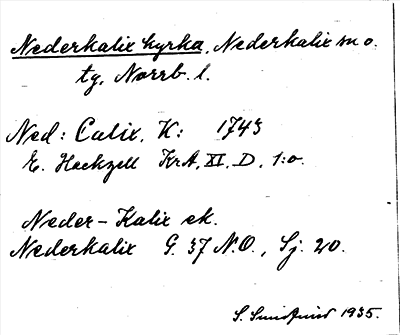 Nederkalix kyrka, Nederkalix sn o.
tg, Norrb. l.
Ned: Calix. K: 1743
E. Hackzell KrA, XI. D. 1:o.
Neder-Kalix sk.
Nederkalix G. 37 N.O., Sj. 20.
S. 1935.